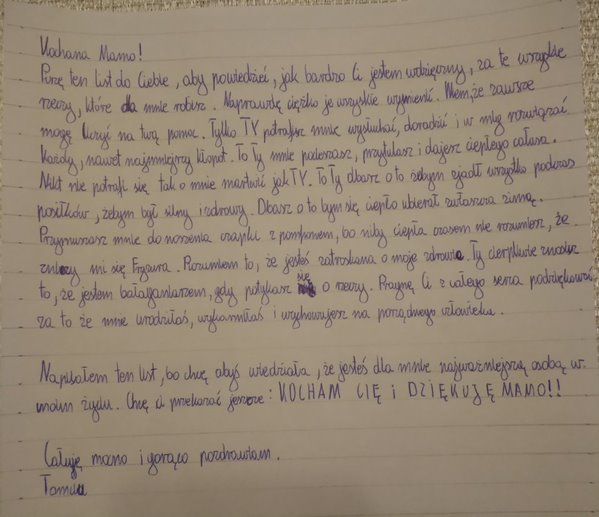 Kochana Mamo!
Piszę ten list do Ciebie, aby powiedzieć, jak bardzo Ci jestem wdzięczny, za te wszystkie
rzeczy, które dla mnie robisz. Naprawdę ciężko je wszystkie wymienić. Wiem, że zawsze
mogę liczyć na twą pomoc. Tylko TY potrafisz mnie wysłuchać, doradzić i w mig rozwiązać
każdy, nawet najmniejszy kłopot. To Ty mnie pocieszasz, przytulasz i dajesz ciepłego całusa.
Nikt nie potrafi się tak o mnie martwić jak TY. To Ty dbasz o to żebym zjadł wszystko podczas
posiłków, żebym był silny i zdrowy. Dbasz o to bym się ciepło ubierał zwłaszcza zimą.
Przymuszasz mnie do noszenia czapki z pomponem, bo niby ciepła czasem nie rozumiesz, że
zniszczy mi się fryzura. Rozumiem to, że jesteś zatroskana o moje zdrowie. Ty cierpliwie znosisz
to, że jestem bałaganiarzem, gdy potykasz się o rzeczy. Pragnę Ci z całego serca podziękować
za to że mnie urodziłaś, wykarmiłaś i wychowujesz na porządnego człowieka.
Napisałem ten list, bo chcę abyś wiedziała, że jesteś dla mnie najważniejszą osobą w
moim życiu. Chcę ci przekazać jeszcze: KOCHAM CIĘ i DZIĘKUJĘ MAMO!!
Całuję mocno i gorąco pozdrawiam.